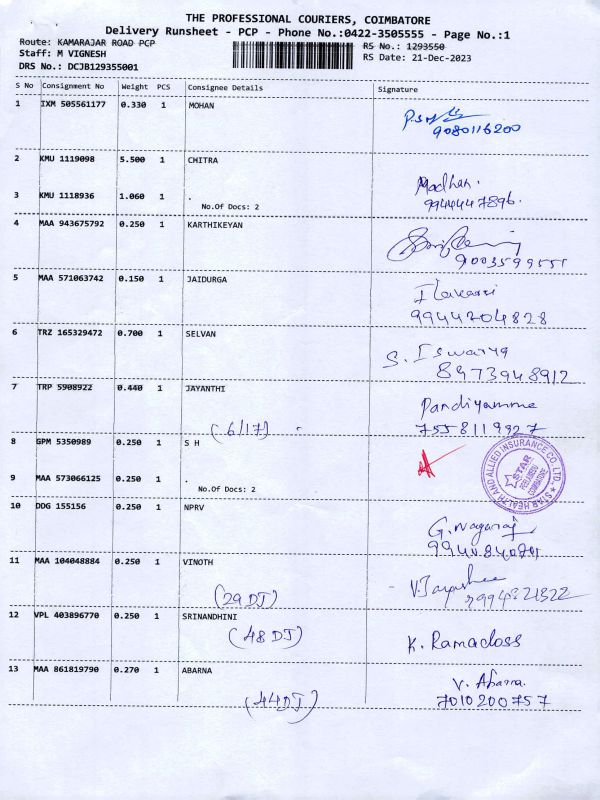 THE PROFESSIONAL COURIERS, COIMBATORE
Delivery Runsheet - PCP - Phone No.:0422-3505555 - Page No.:1
Route: KAMARAJAR ROAD PCP
RS No.: 1293550
Staff: M VIGNESH
RS Date: 21-Dec-2023
DRS No.: DCJB129355001
S No Consignment No Weight PCS Consignee Details Signature
1 IXM 505561177 0.330 1 MOHAN
9080116200
2 KMU 1119098 5.500 1 CHITRA
Madhan.
3 KMU 1118936 1.060 1 .
No.Of Docs: 2
9944447896.
4 MAA 943675792 0.250 1 KARTHIKEYAN
9003599551
5 MAA 571063742 0.150 1 JAIDURGA
9944204828
6 TRZ 165329472 0.700 1 SELVAN
S. Iswarya
8973948912
7 TRP 5908922 0.440 1 JAYANTHI
Pandiyamma
(6/17)
7558119927
8 GPM 5350989 0.250 1 S H
STAR HEALTH AND ALLIED INSURANCE CO. LTD.
STAR
PEELAMEDU
COIMBATORE
9 MAA 573066125 0.250 1 .
No.Of Docs: 2
10 DDG 155156 0.250 1 NPRV
G. Nagaraj
11 MAA 104048884 0.250 1 VINOTH
(29 DJ)
12 VPL 403896770 0.250 1 SRINANDHINI
(48 DJ)
K. Ramadoss
13 MAA 861819790 0.270 1 ABARNA
V. Abarna.
(44 DJ)
7010200757